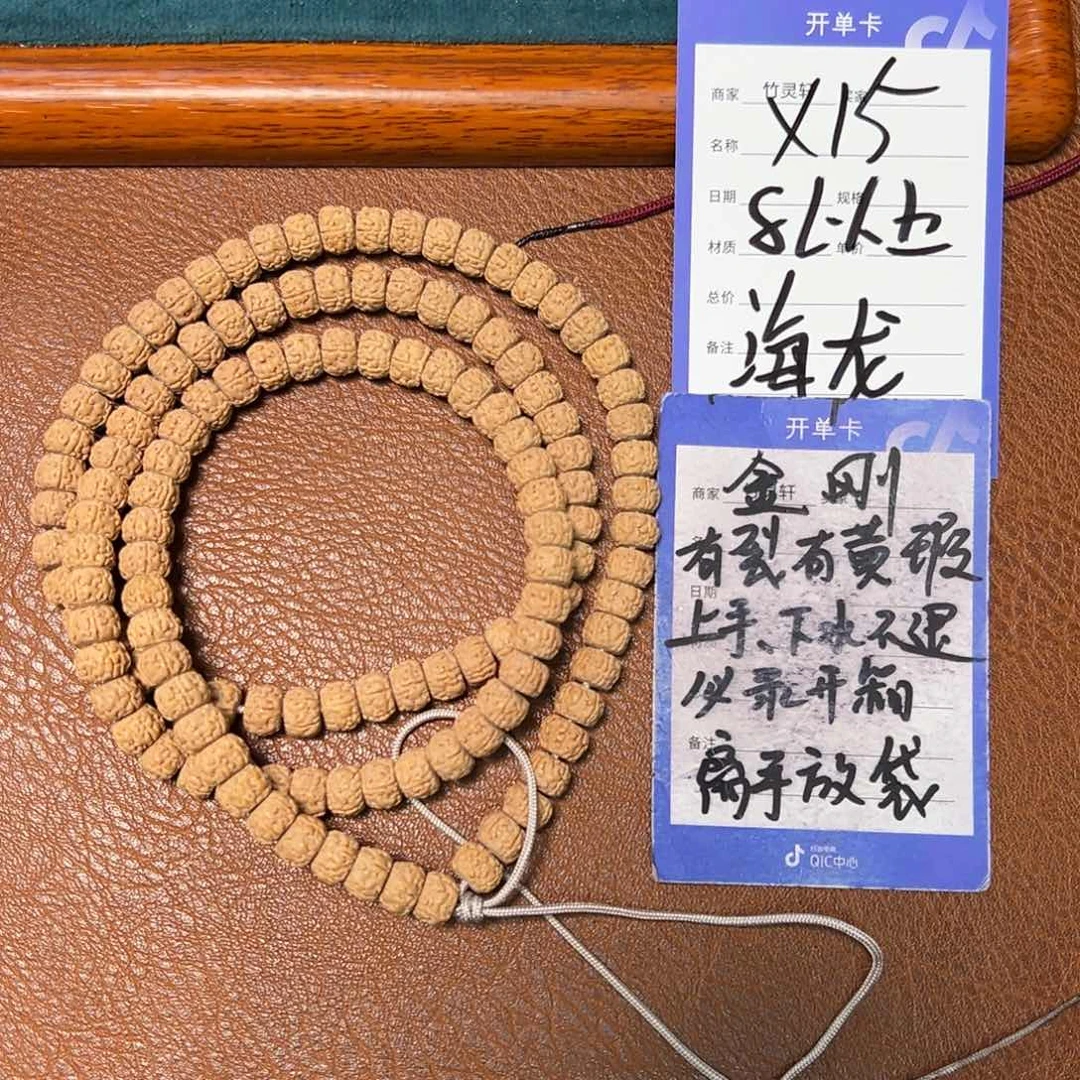 开单卡
商家 竹灵轩 卖家
X15
名称
日期 规格
材质 单价
总价
海龙
备注
开单卡
金刚
商家 轩
有裂有黄瑕
日期
上手、下水不退
必录开箱
备注
离手放袋
抖音电商
QIC中心